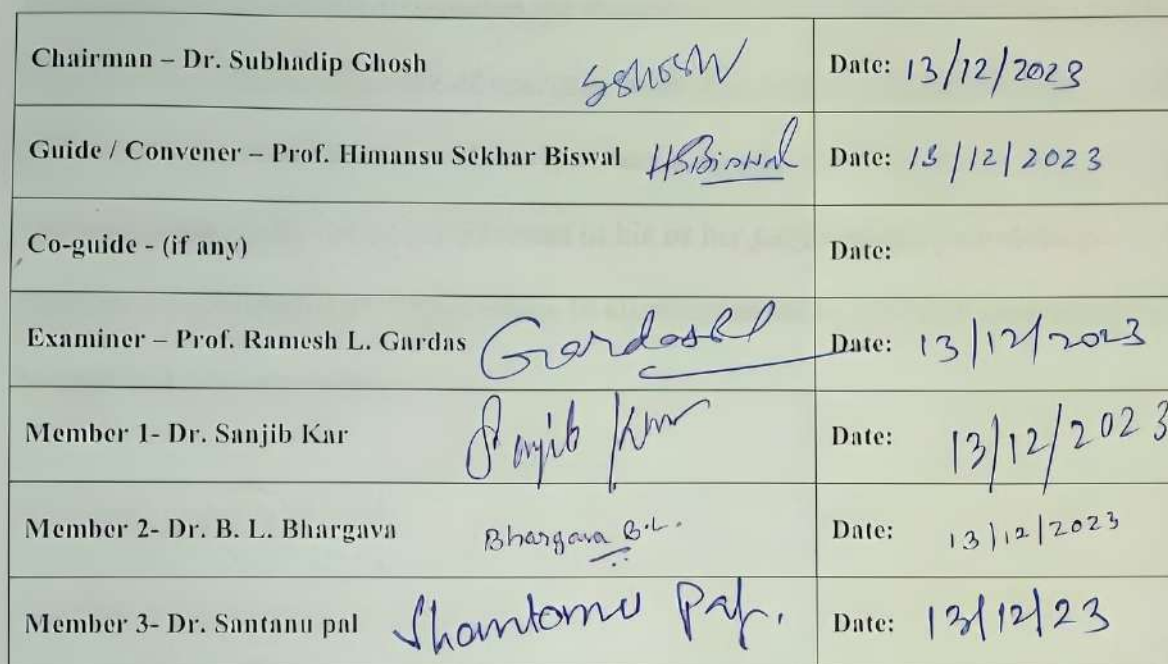 Chairman – Dr. Subhadip Ghosh SGhosh Date: 13/12/2023
Guide / Convener – Prof. Himansu Sekhar Biswal HSBiswal Date: 13/12/2023
Co-guide - (if any) Date:
Examiner – Prof. Ramesh L. Gardas GardasRL Date: 13/12/2023
Member 1- Dr. Sanjib Kar Sanjib Kar Date: 13/12/2023
Member 2- Dr. B. L. Bhargava Bhargava B.L. Date: 13/12/2023
Member 3- Dr. Santanu pal Shantanu Pal. Date: 13/12/23